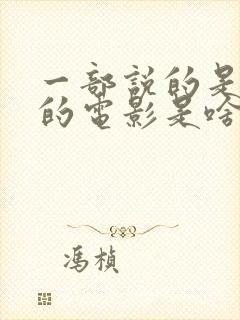 一部説的是
的電影是啥
馮楨